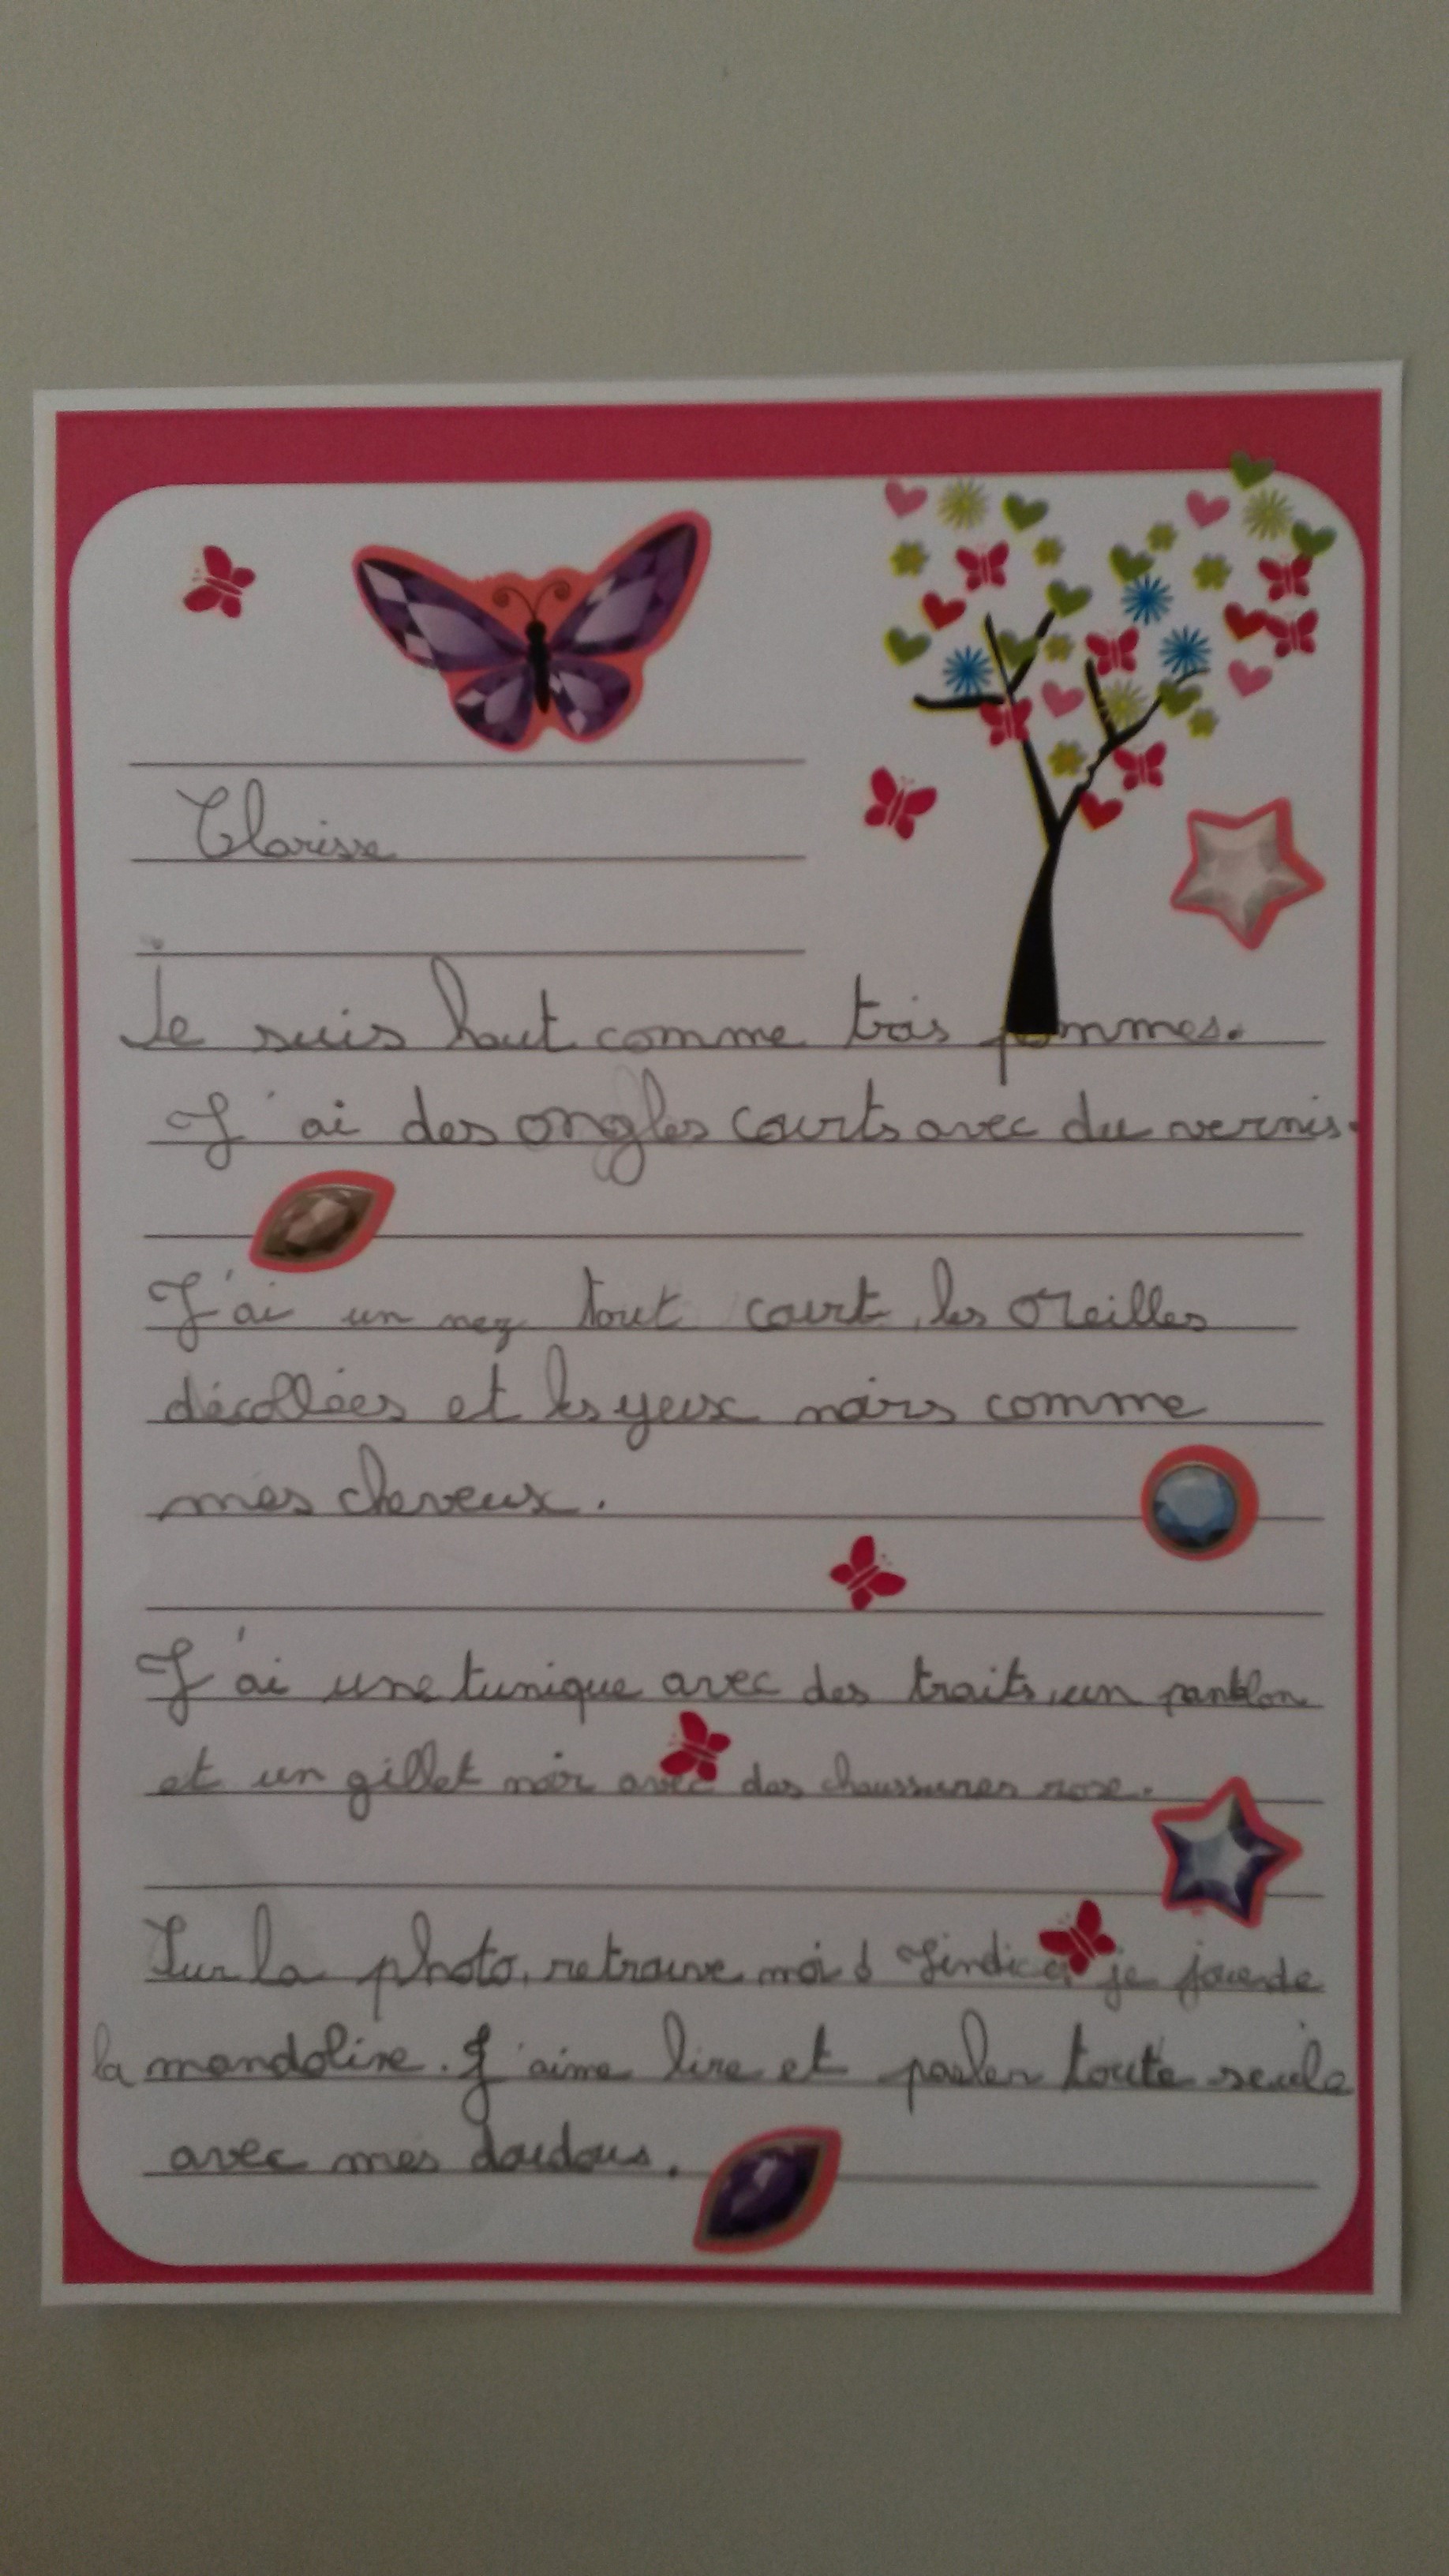 Clarisse
Je suis haut comme trois pommes.
J'ai des ongles courts avec du vernis.
J'ai un nez tout court, les oreilles
décollées et les yeux noirs comme
mes cheveux.
J'ai une tunique avec des traits, un pantalon
et un gillet noir avec des chaussures rose.
Sur la photo, retrouve moi! je joue de
la mandoline. J'aime lire et parler toute seule
avec mes doudous.